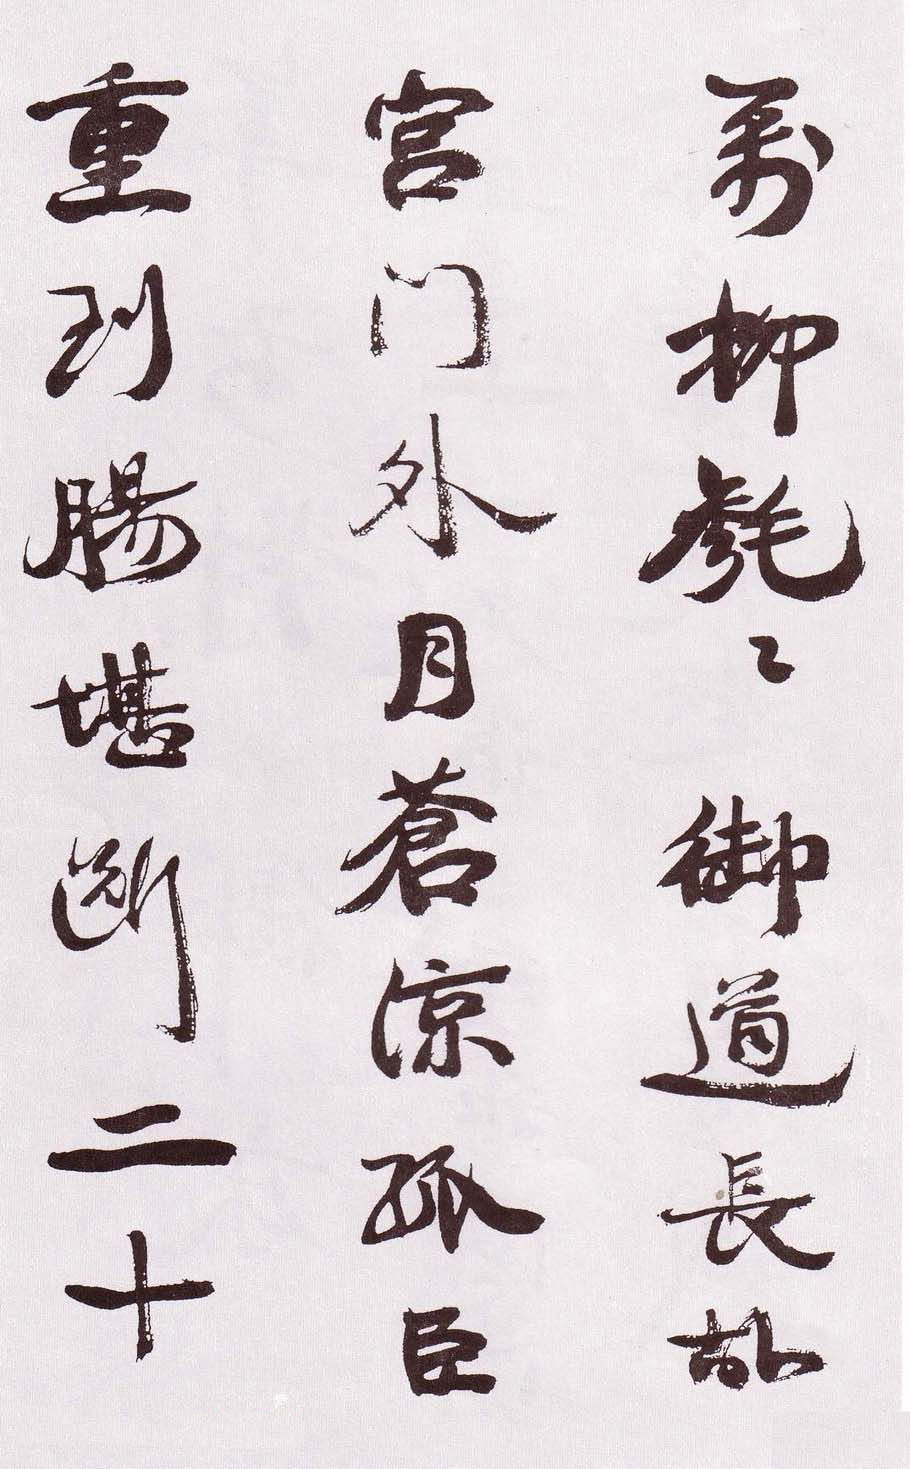 萬柳毿々御道長故
宮門外月蒼涼孤臣
重到腸堪斷二十